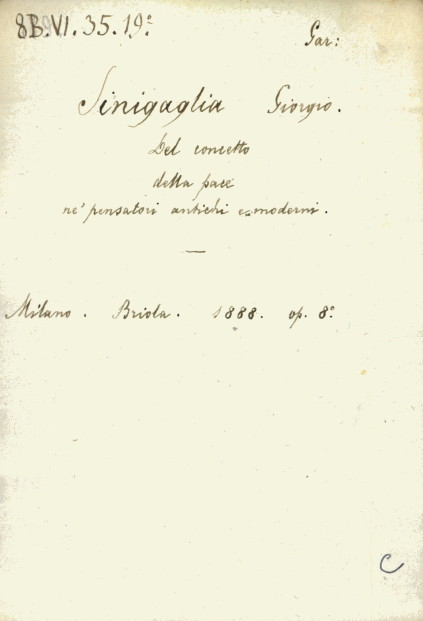 8B.VI.35.19º
Gar:
Sinigaglia Giorgio.
Del concetto
della pace
ne' pensatori antichi e moderni.
Milano. Briola. 1888. op. 8º
C